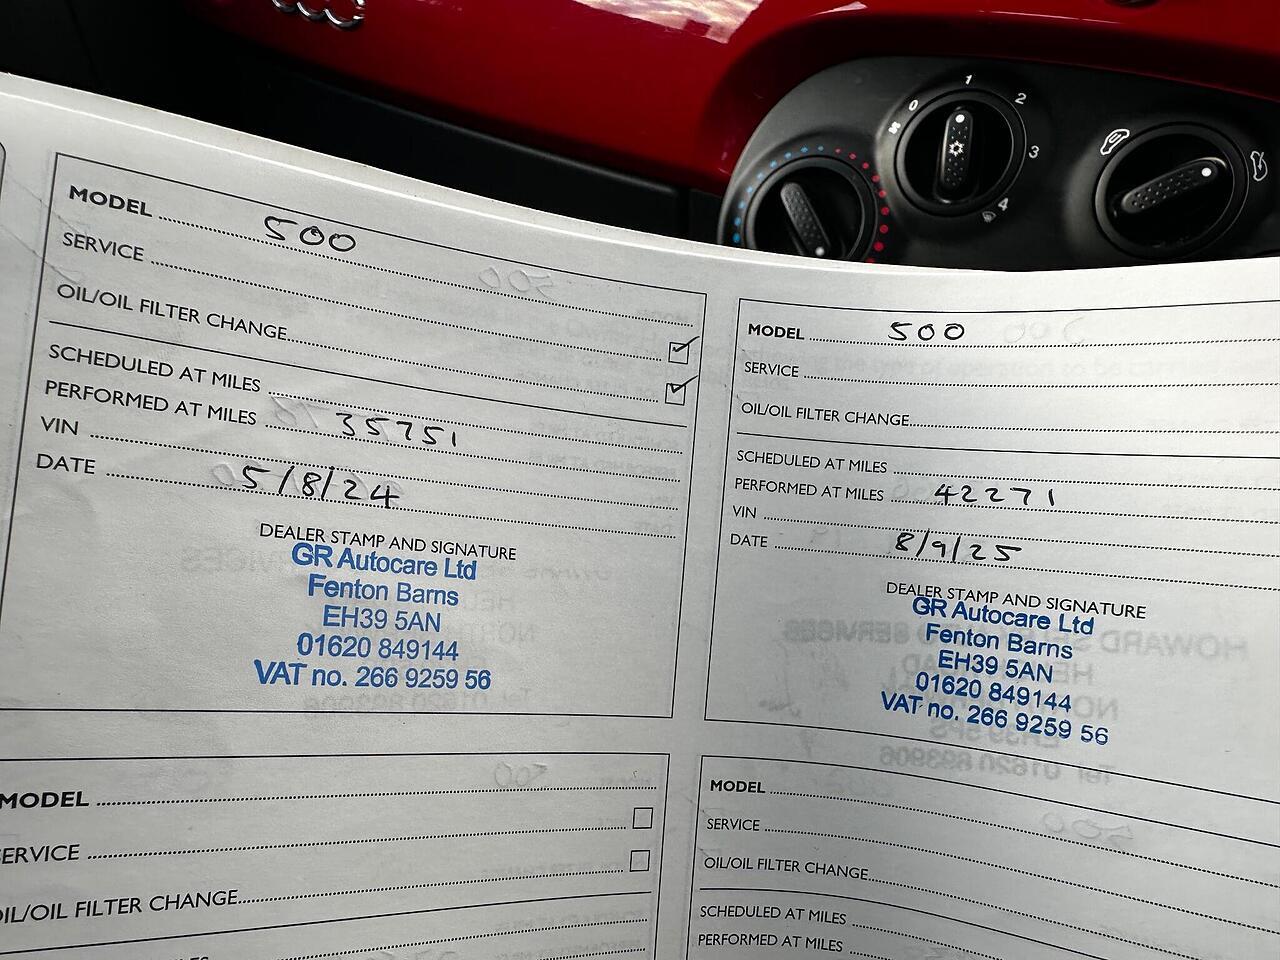 0 1 2 3 4
MODEL 500
SERVICE
OIL/OIL FILTER CHANGE
SCHEDULED AT MILES
PERFORMED AT MILES 35751
VIN
DATE 5/8/24
DEALER STAMP AND SIGNATURE
GR Autocare Ltd
Fenton Barns
EH39 5AN
01620 849144
VAT no. 266 9259 56
MODEL 500
SERVICE
OIL/OIL FILTER CHANGE
SCHEDULED AT MILES
PERFORMED AT MILES 42271
VIN
DATE 8/9/25
DEALER STAMP AND SIGNATURE
GR Autocare Ltd
Fenton Barns
EH39 5AN
01620 849144
VAT no. 266 9259 56
MODEL
SERVICE
OIL/OIL FILTER CHANGE
MODEL
SERVICE
OIL/OIL FILTER CHANGE
SCHEDULED AT MILES
PERFORMED AT MILES